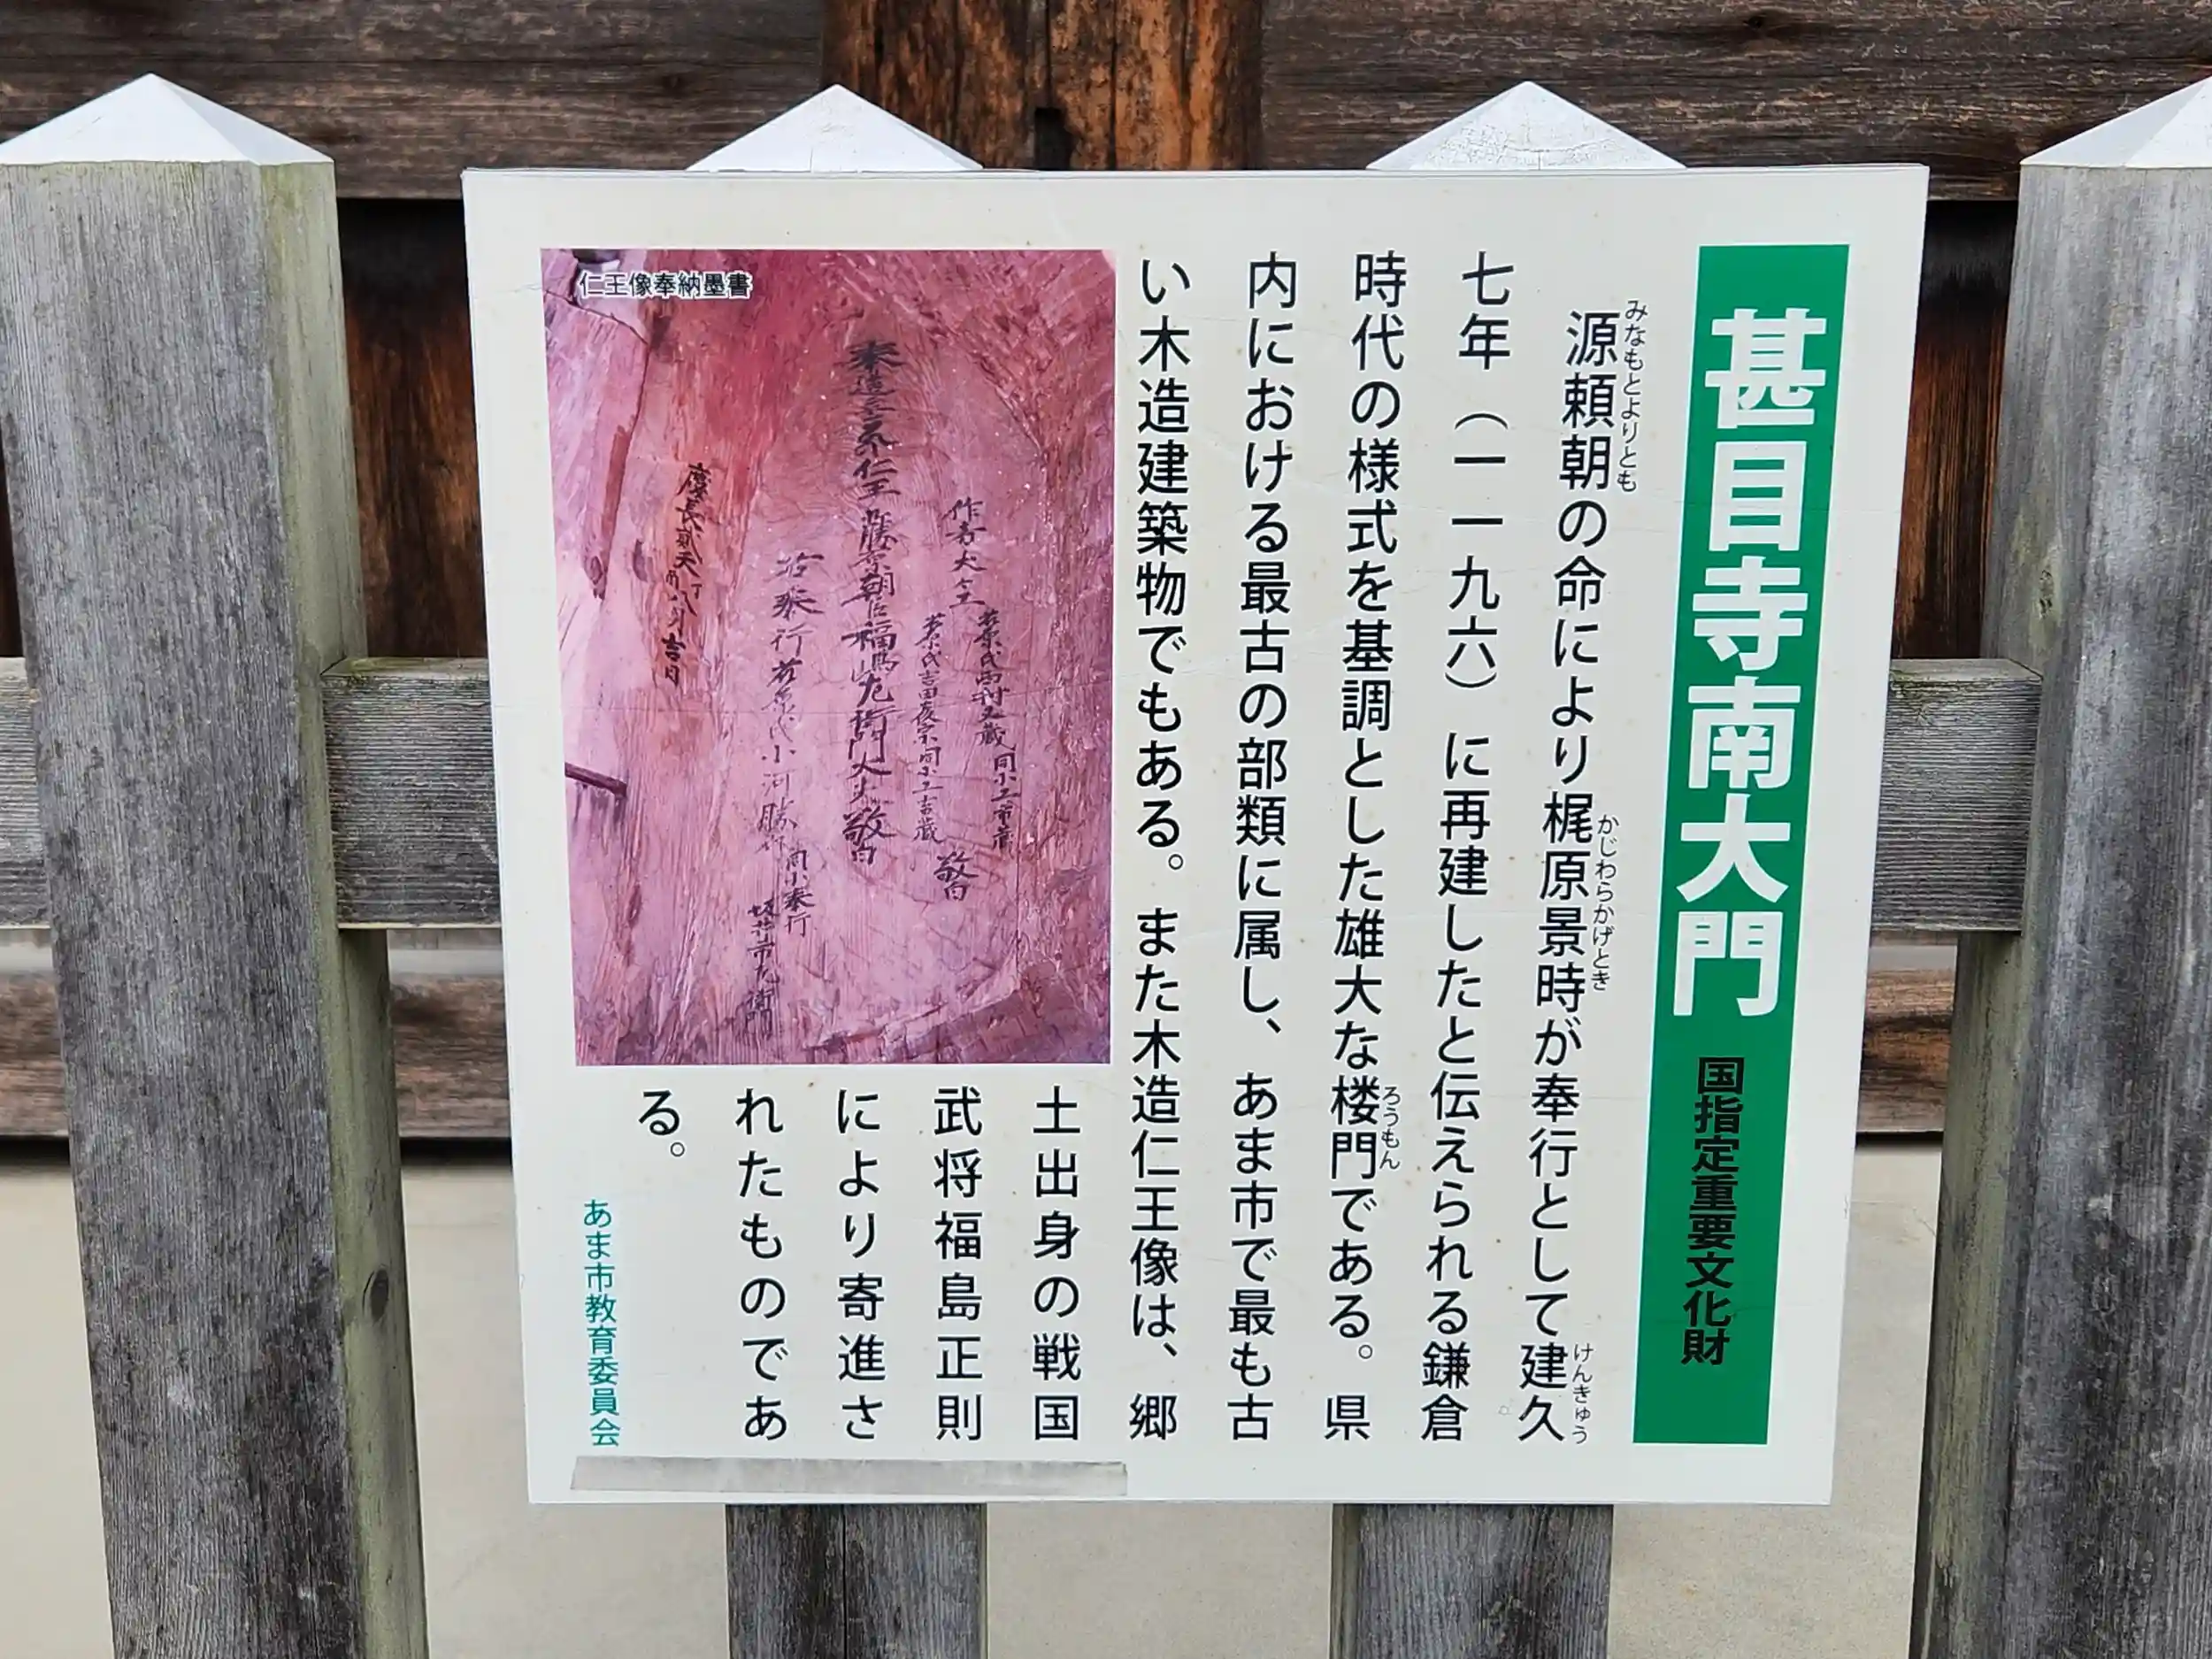 甚目寺南大門 国指定重要文化財
源頼朝の命により梶原景時が奉行として建久
みなもとよりとも
かじわらかげとき
けんきゅう
七年（一一九六）に再建したと伝えられる鎌倉
時代の様式を基調とした雄大な楼門である。県
ろうもん
内における最古の部類に属し、あま市で最も古
い木造建築物でもある。また木造仁王像は、郷
土出身の戦国
武将福島正則
により寄進さ
れたものであ
る。
あま市教育委員会
仁王像奉納墨書
作者大工
敬白
敬白
吉日